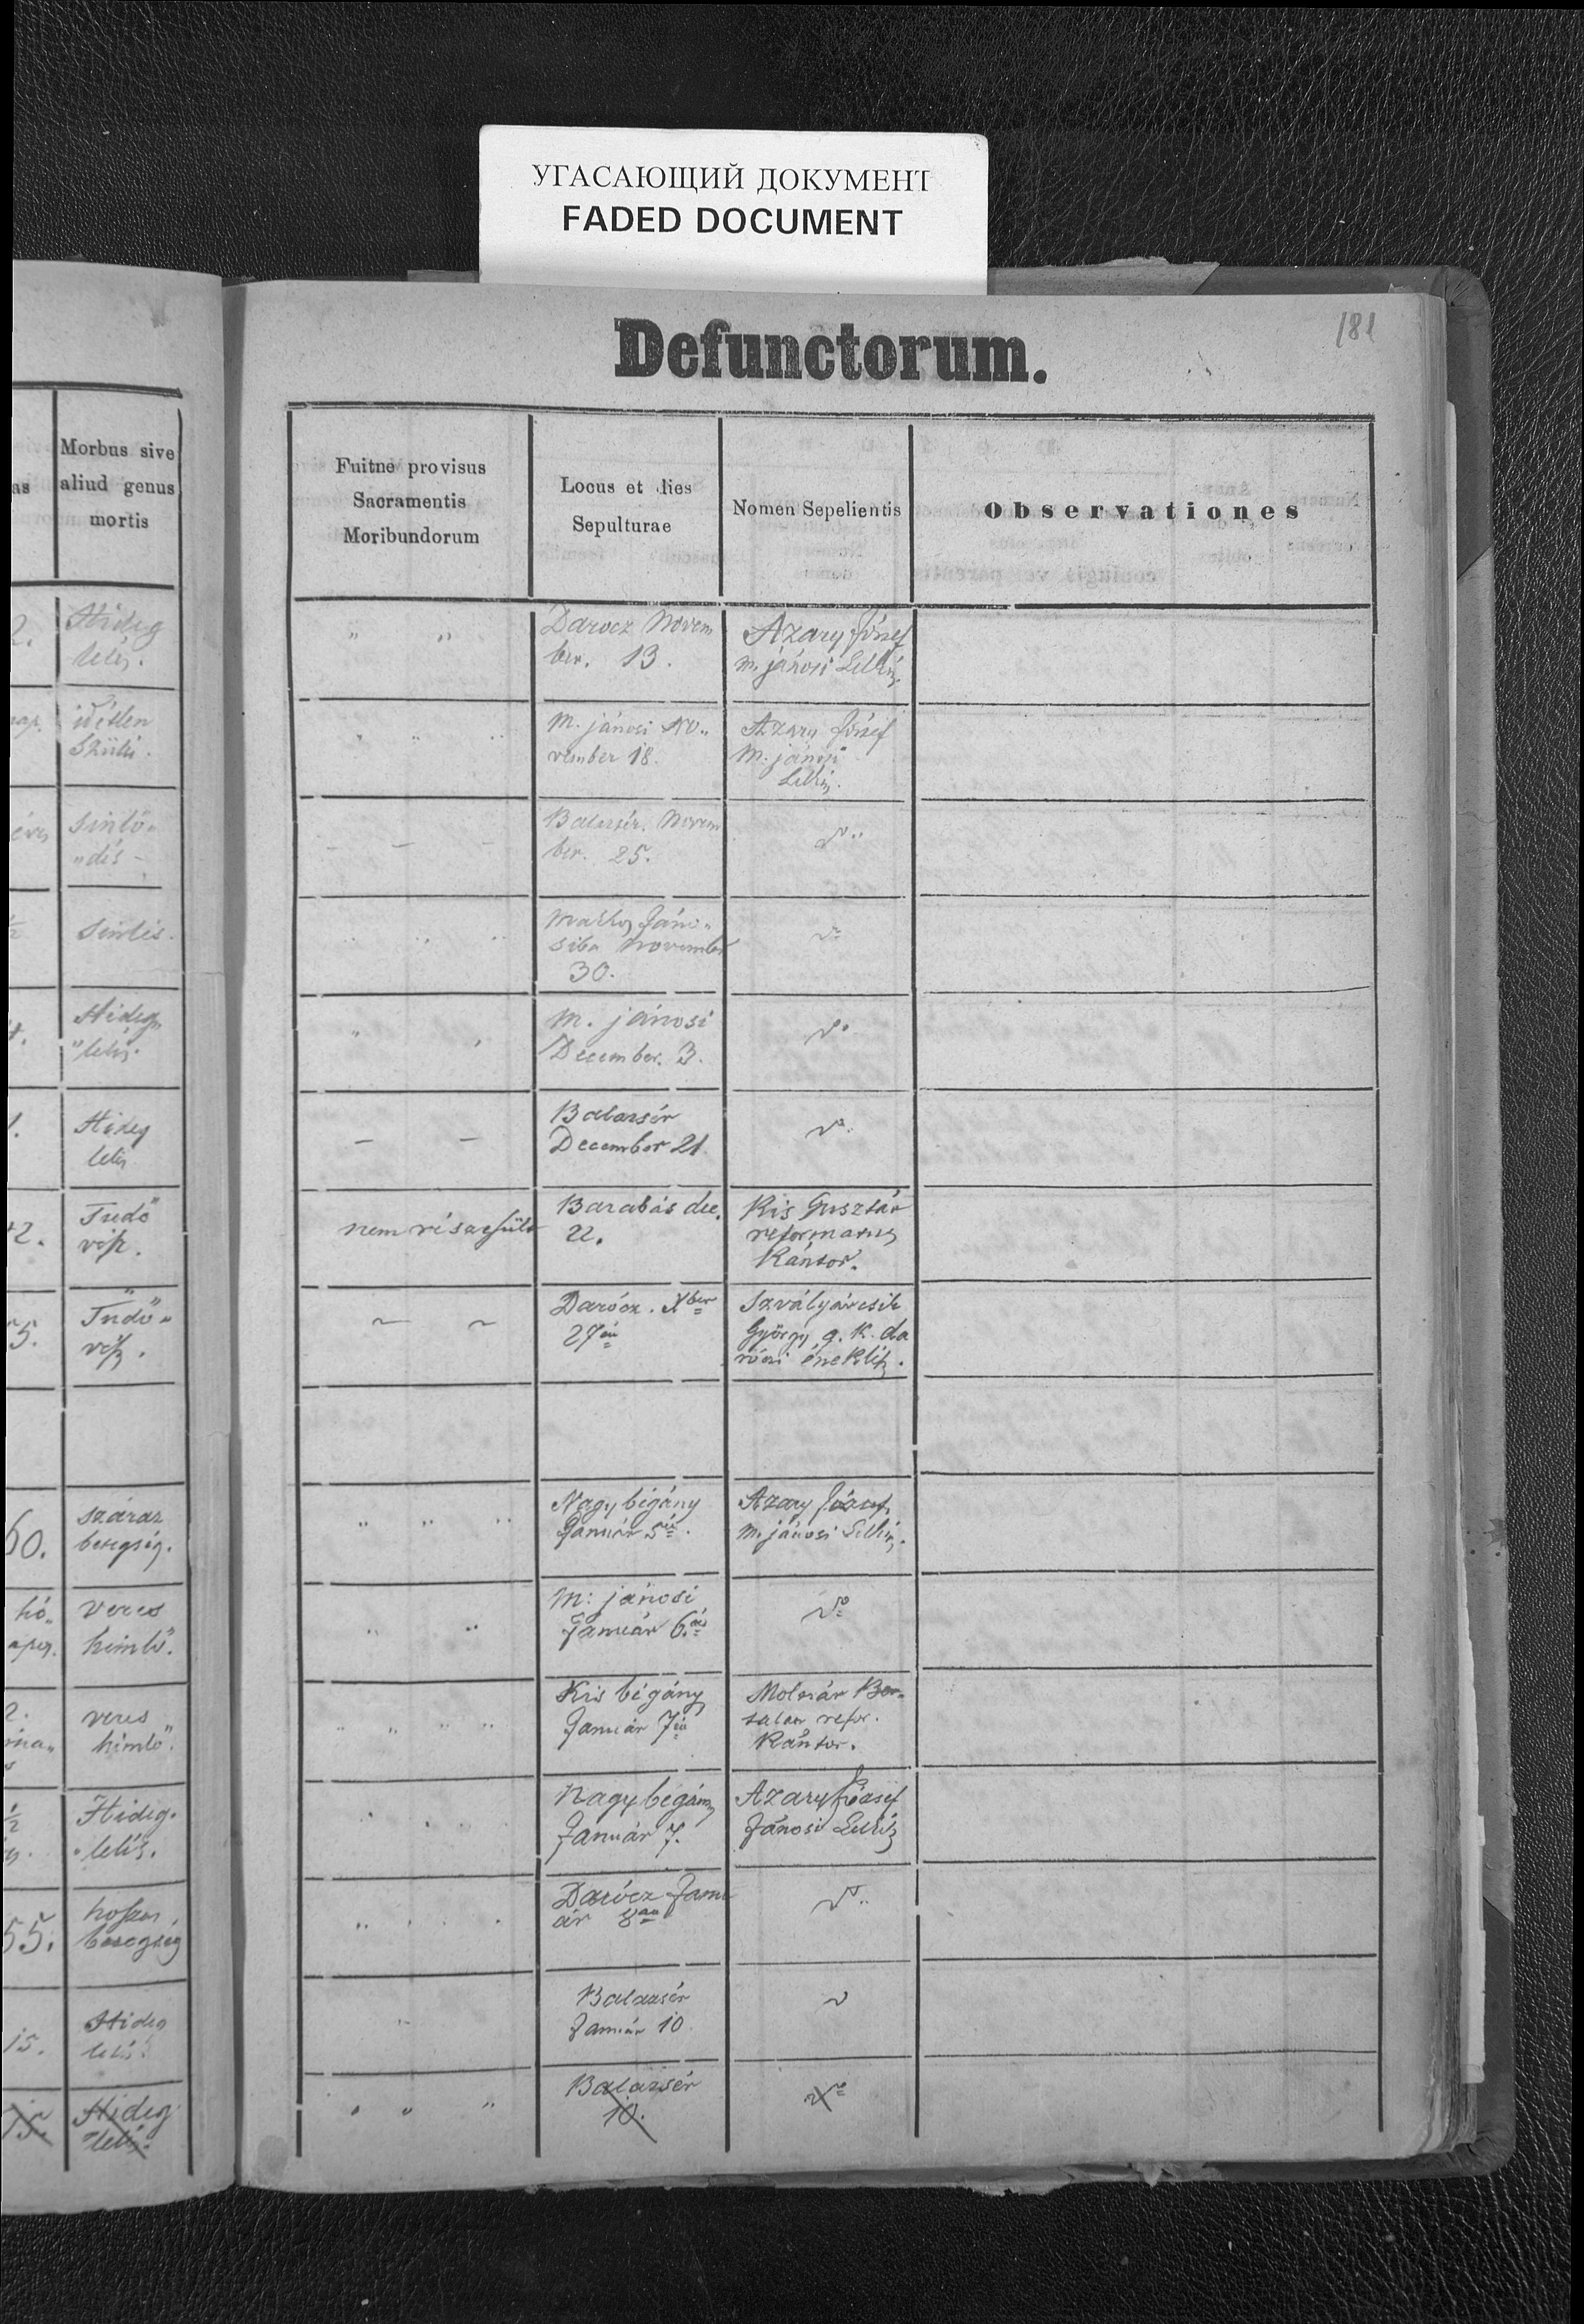 УГАСАЮЩИЙ ДОКУМЕНТ
FADED DOCUMENT
181
Defunctorum.
as
Morbus sive
aliud genus
mortis
Fuitne provisus
Sacramentis
Moribundorum
Locus et dies
Sepulturae
Nomen Sepelientis
Observationes
2.
Hideg
lelés.
" "
Darocz Novem
ber. 13.
Azary József
m. jánosi Lelkész
nap.
idétlen
Szülés.
" " "
M. jánosi No„
vember 18.
Azary József
M. jánosi
Lelkész.
éves
Sinlő„
„dés –
– – –
Balazsér. Novem
ber. 25.
do
½
Sinlés.
" " "
Mezős Jáno„
siba November
30.
do
Hideg„
"lelés.
" "
M. jánosi
December. 3.
do
1.
Hideg
lelés
– –
Balazsér
December 21.
do
2.
Tüdő
vész.
nem részesült
Barabás dec.
22.
Kis Gusztáv
reformatus
Kántor.
5.
Tüdő„
vész.
~ ~
Darócz. Xber
27én
Szvályávcsik
György g. k. da
róczi éneklész.
60.
száraz
betegség.
" " "
Nagy bégány
Január 5én.
Azary József
m. jánosi Lelkész.
hó„
apos.
veres
himlő.
" "
M: jánosi
Január 6án
do
2.
veres
himlő.
" " " "
Kis bégány
Január 7én
Molnár Ber„
talan refor.
Kántor.
½
Hideg.
lelés.
" " "
Nagy bégány
Január 7.
Azary József
Jánosi Lelkész
55.
hoszas
betegség
" " " "
Darócz Janu
ár 8an
do
15.
Hideg
lelés.
"
Balazsér
Január 10.
do
75.
Hideg
lelés.
" " "
Balazsér
10.
do